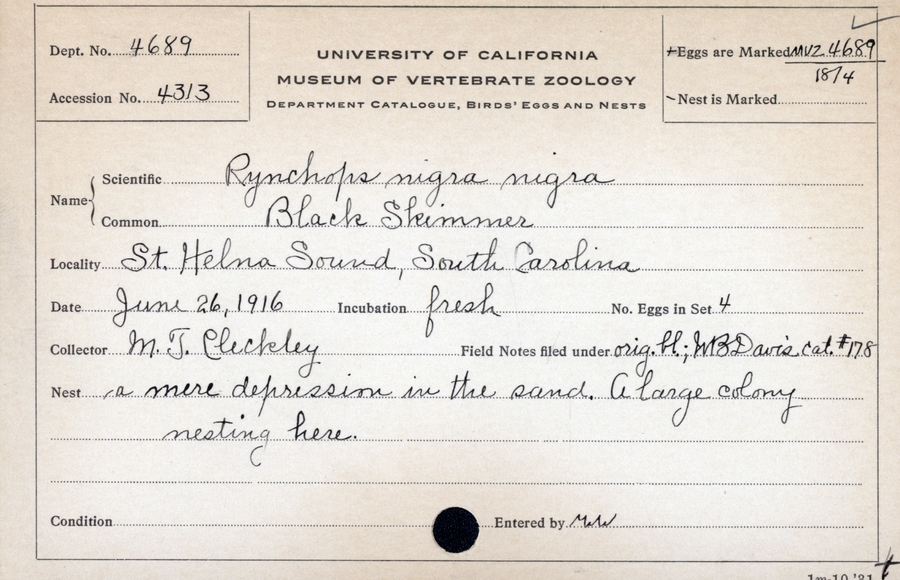 Dept. No. 4689
Accession No. 4313
UNIVERSITY OF CALIFORNIA
MUSEUM OF VERTEBRATE ZOOLOGY
DEPARTMENT CATALOGUE, BIRDS' EGGS AND NESTS
Eggs are Marked MVZ 4689
18/4
Nest is Marked
Name
Scientific Rynchops nigra nigra
Common Black Skimmer
Locality St. Helna Sound, South Carolina
Date June 26, 1916 Incubation fresh No. Eggs in Set 4
Collector M. T. Cleckley Field Notes filed under orig. bl.; WBDavis cat. #178
Nest a mere depression in the sand. A large colony
nesting here.
Condition Entered by
1m-10,'31